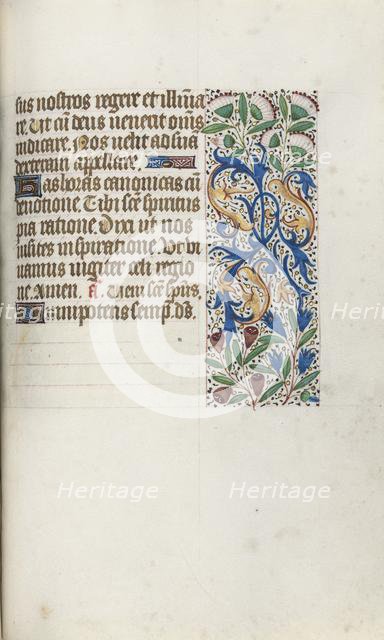 sus nostros regere et illumina
re. Ut cum deus venerit omnes
iudicare. Nos velit ad sua
dexteram appellare.
Has horas canonicas cum
devotione. Tibi sancte spiritus
pia ratione Dixi ut nos
visites inspiratione. Et vi
vamus iugiter celi regio
ne. Amen. A. Veni sancte spiritus
Omnipotens sempiterne deus
Heritage
Heritage
Heritage
Heritage
Heritage
Heritage